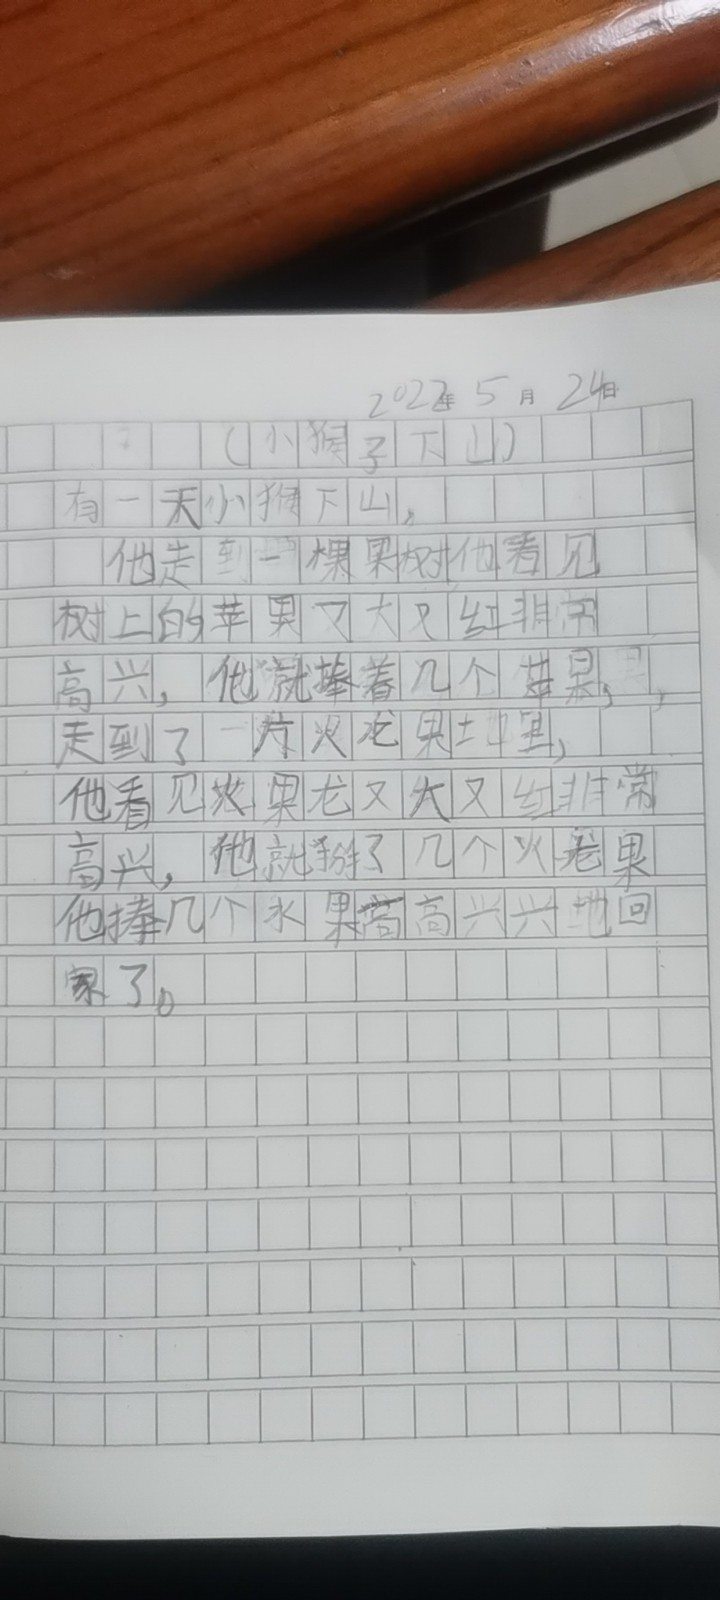 2022年5月24日
（小猴子下山）
有一天小猴下山，
他走到一棵果树他看见
树上的苹果又大又红非常
高兴，他就捧着几个苹果，，
走到了一片火龙果地里，
他看见火果龙又大又红非常
高兴，他就掰了几个火龙果
他捧几个水果高高兴兴地回
家了。